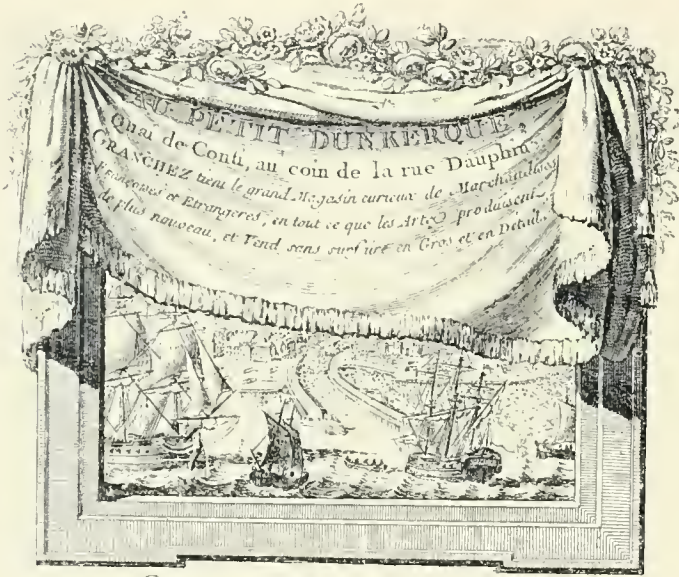 AU PETIT DUNKERQUE,
Quai de Conti, au coin de la rue Dauphine,
GRANCHEZ tient le grand Magasin curieux de Marchandises
Françoises et Etrangeres, en tout ce que les Arts produisent
de plus nouveau, et Vend sans surfaire en Gros et en Détail.